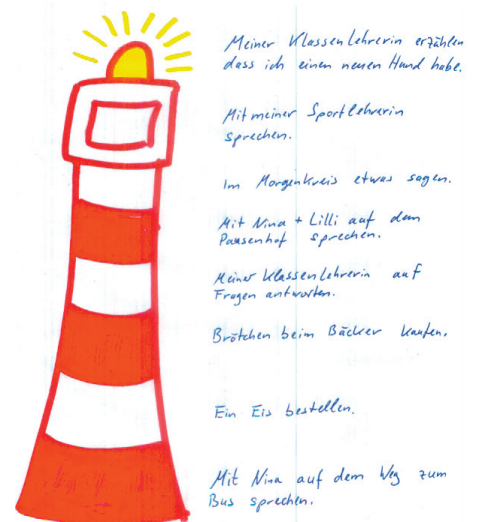 Meiner Klassenlehrerin erzählen
dass ich einen neuen Hund habe.
Mit meiner Sportlehrerin
sprechen.
Im Morgenkreis etwas sagen.
Mit Nina + Lilli auf dem
Pausenhof sprechen.
Meiner Klassenlehrerin auf
Fragen antworten.
Brötchen beim Bäcker kaufen.
Ein Eis bestellen.
Mit Nina auf dem Weg zum
Bus sprechen.